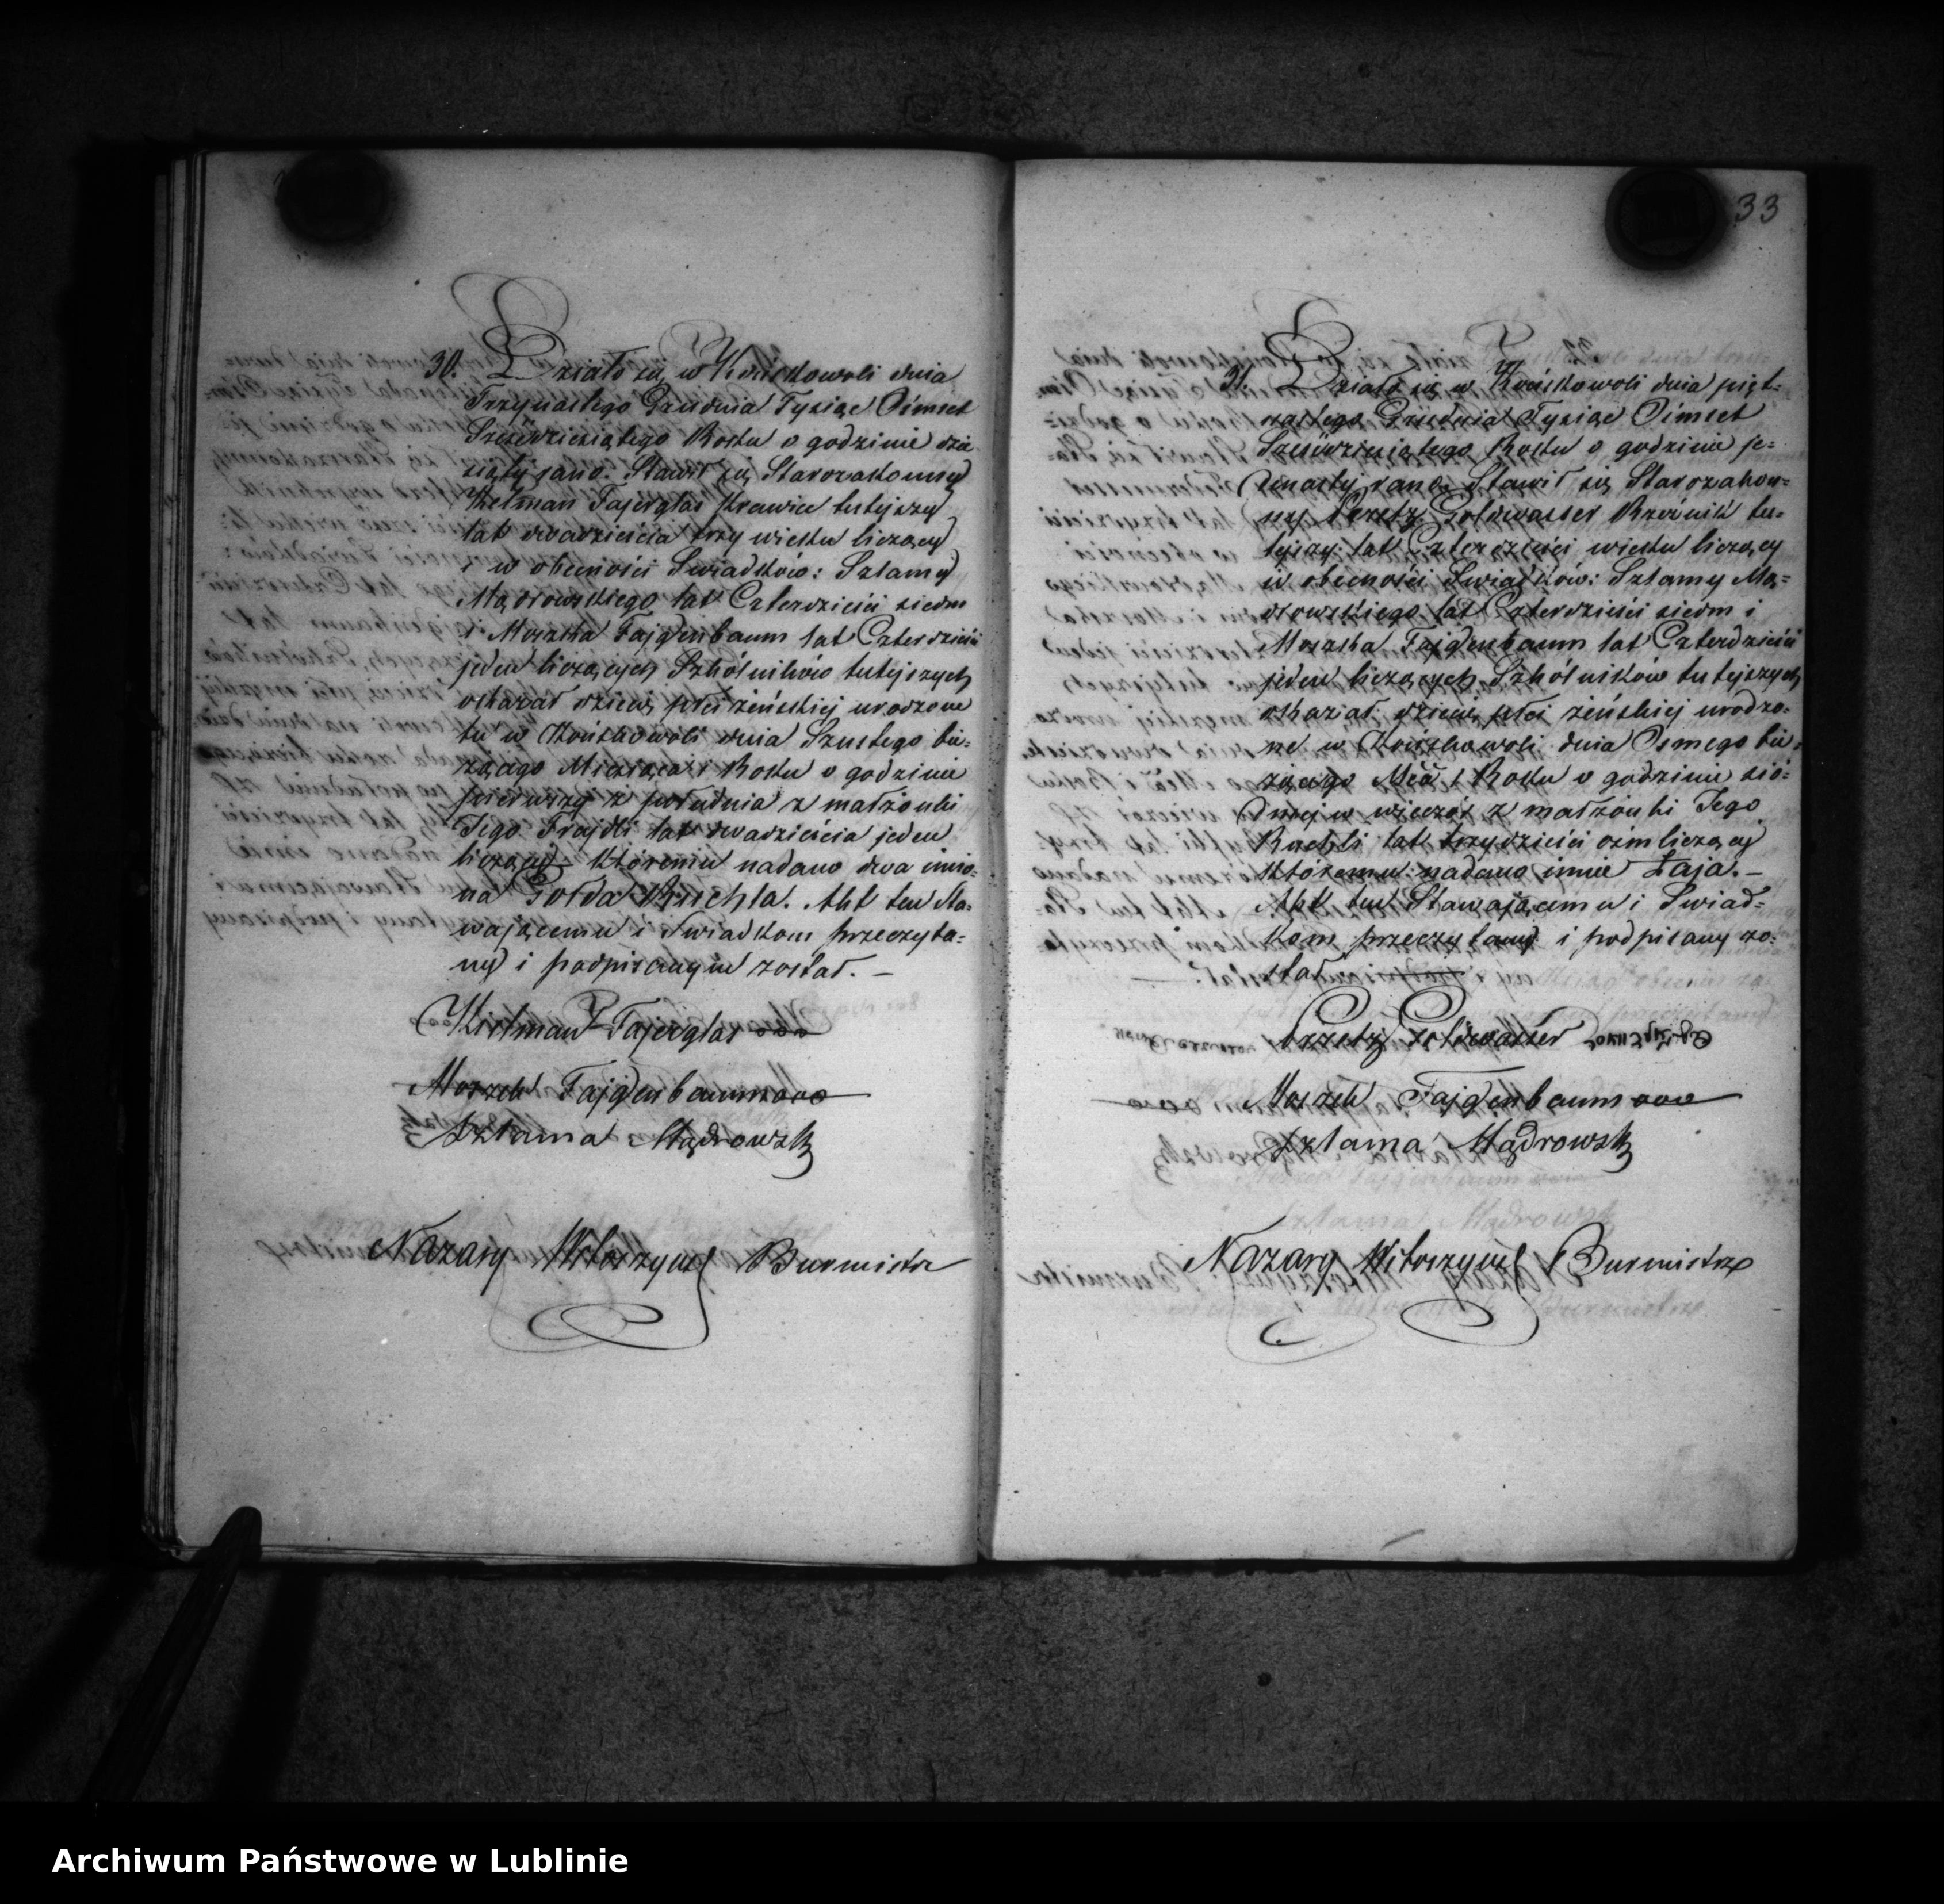 30. Działo się w Końskowoli dnia
Trzynastego Grudnia Tysiąc Ośmset
Sześćdziesiątego Roku o godzinie dzie
siąty rano. Stawił się Starozakonny
Kielman Fajerglas Krawiec tutejszy
lat dwadzieścia trzy wieku liczący
i w obecności Swiadków: Szlamy
Mądrowskiego lat Czterdzieści siedm
i Moszka Fajgenbaum lat Czterdzieści
jeden liczących Szkólników tutejszych
okazał dziecię płci żeńskiej urodzone
tu w Końskowoli dnia Szustego bie=
żącego Miesiąca i Roku o godzinie
pierwszy z południa z małżonki
Jego Frajdli lat dwadzieścia jeden
liczący: któremu nadano dwa imio=
na Gołda Ruchla. Akt ten Sta=
wającemu i Swiadkom przeczyta=
ny i podpisanym został. —
Kielman Fajerglas
Moszek Fajgenbaum
Szlama Mądrowski
Nazary Burmistrz
33
31. Działo się w Końskowoli dnia pięt=
nastego Grudnia Tysiąc Ośmset
Sześćdziesiątego Roku o godzinie je=
denasty rano. Stawił się Starozakon=
ny Peretz Goldwasser Rzeźnik tu=
tejszy lat Czterdzieści wieku liczący
w obecności Swiadków: Szlamy Mą=
drowskiego lat Czterdzieści siedm i
Moszka Fajgenbaum lat Czterdzieści
jeden liczących Szkólników tutejszych
okaział dziecię płci żeńskiej urodzo=
ne w Końskowoli dnia Osmego bie=
żącego Mca i Roku o godzinie sió=
dmej w wieczór z małżonki Jego
Ruchli lat trzydzieści ośm liczący
któremu nadano imie Łaja. —
Akt ten Stawającemu i Swiad=
kom przeczytany i podpisany zo=
stał
Peretz Goldwasser
Moszek Fajgenbaum
Szlama Mądrowski
Nazary Burmistrz
Archiwum Państwowe w Lublinie